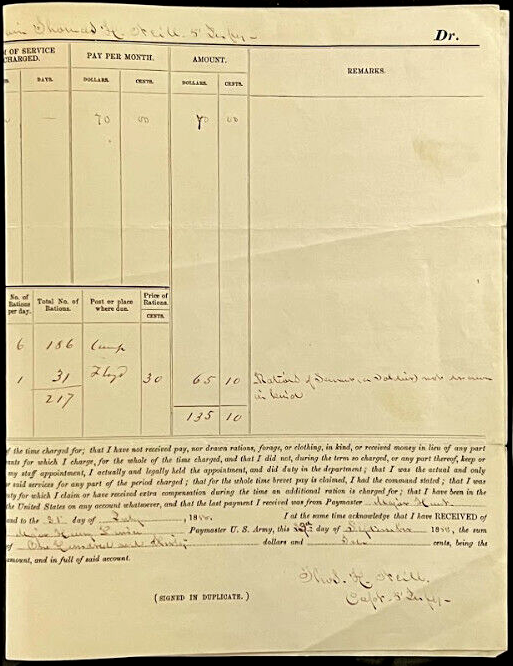 Thomas H. Neill 5" Infy - Dr.
OF SERVICE CHARGED. PAY PER MONTH. AMOUNT. REMARKS.
DAYS. DOLLARS. CENTS. DOLLARS. CENTS.
— 70 00 70 00
No. of Rations per day. Total No. of Rations. Post or place where due. Price of Rations.
CENTS.
6 186 Camp
1 31 Floyd 30 65 10 Rations of Servant, (a Soldier) not drawn
217 in kind
135 10
of the time charged for; that I have not received pay, nor drawn rations, forage, or clothing, in kind, or received money in lieu of any part
ants for which I charge, for the whole of the time charged, and that I did not, during the term so charged, or any part thereof, keep or
my staff appointment, I actually and legally held the appointment, and did duty in the department; that I was the actual and only
or said services for any part of the period charged; that for the whole time brevet pay is claimed, I had the command stated; that I was
uty for which I claim or have received extra compensation during the time an additional ration is charged for; that I have been in the
the United States on any account whatsoever, and that the last payment I received was from Paymaster Major
and to the 31st day of July 1860. I at the same time acknowledge that I have RECEIVED of
Major Paymaster U. S. Army, this day of September 1860, the sum
of One Hundred and Thirty dollars and Ten cents, being the
amount, and in full of said account.
Thos. H. Neill.
Capt. 5" Infy -
(SIGNED IN DUPLICATE.)